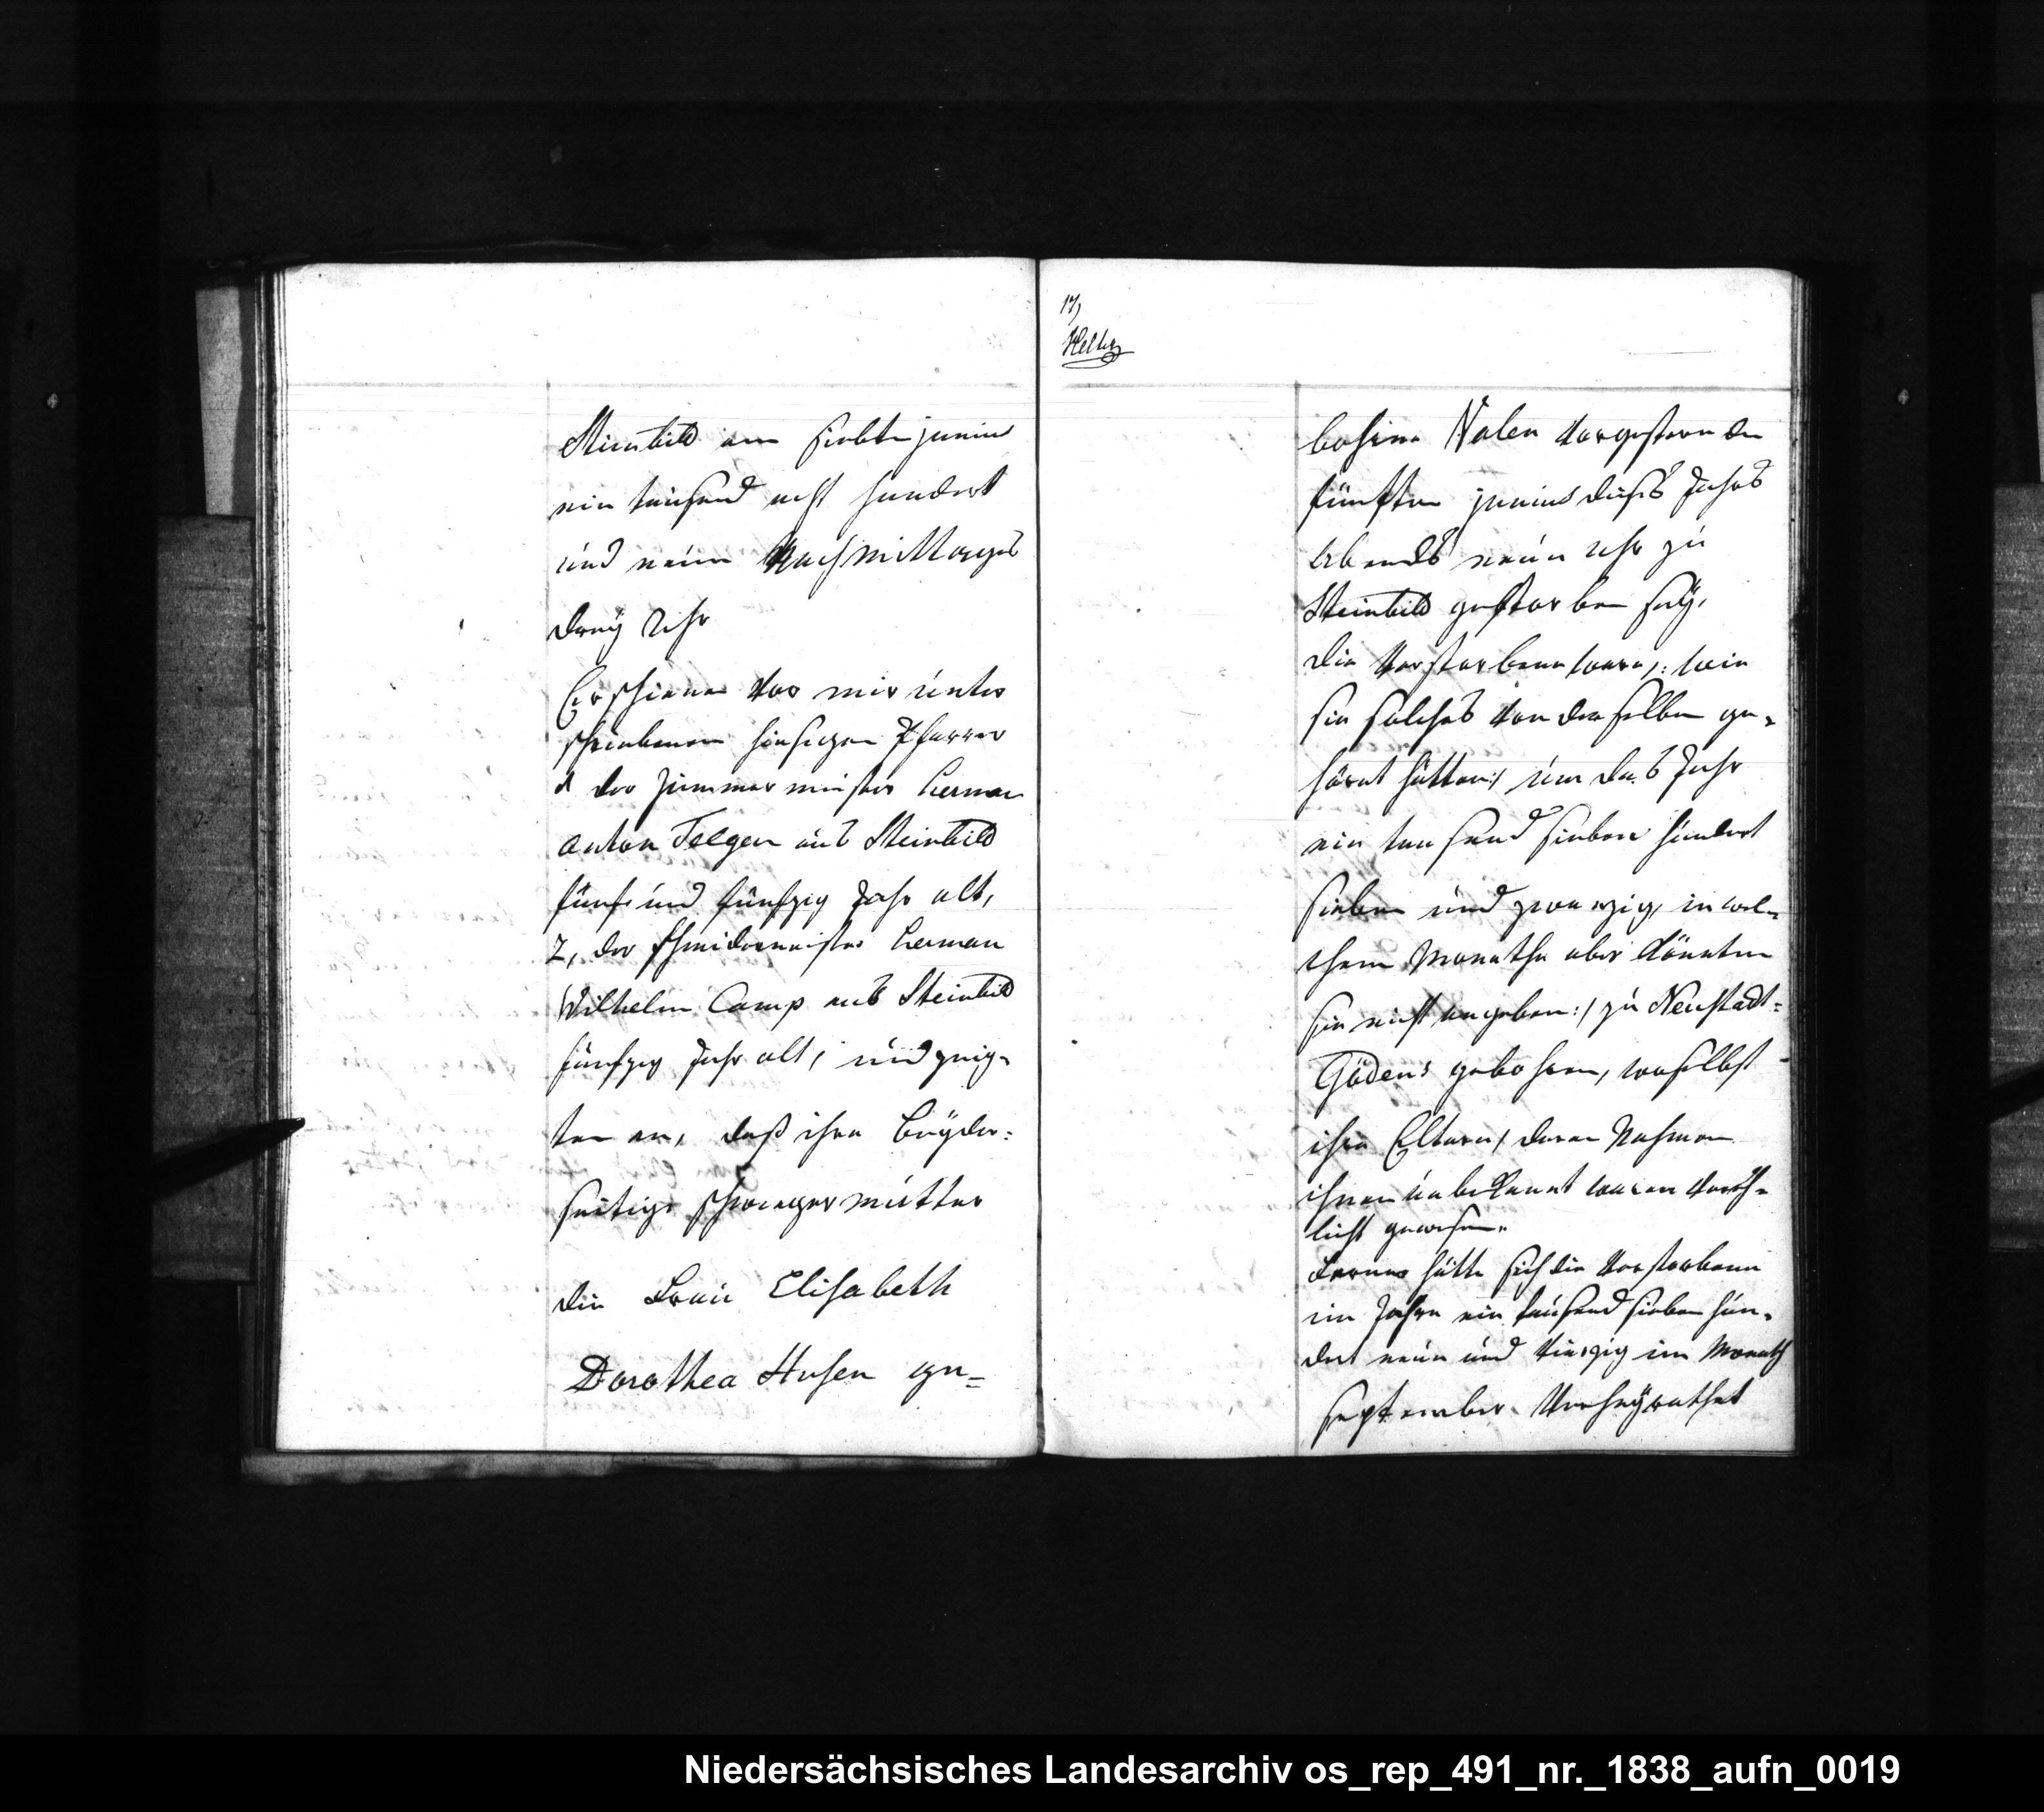 Steinbild am siebten junius
ein tausend acht hundert
und neun Nachmittages
dreÿ Uhr
Erschienen vor mir unter
schriebenen hiesigen Pfarrer
1 der Zimmermeister Herman
Anton Telgen aus Steinbild
fünf und fünfzig Jahr alt,
2, der Schneidermeister Herman
Wilhelm Camp aus Steinbild
fünfzig Jahr alt, und zeig=
ten an, daß ihre beÿder=
seitige Schwiegermutter
die Frau Elisabeth
Dorothea Husen ge=
17,
bohrne Nolen vorgestern den
fünften junius dieses Jahrs
Abends neun Uhr zu
Steinbild gestorben seÿ,
die Verstorbene ware /: wie
sie solches von derselben ge=
höret hätten :/ um das Jahr
ein tausend sieben hundert
sieben und zwanzig, in wel=
chem Monathe aber könnten
sie nicht angeben :/ zu Neustadt=
Gödens gebohren, woselbst
ihre Eltern / deren Nahmen
ihnen unbekannt waren
gewesen.
Ferner hätte sich die Verstorbene
im Jahre ein tausend sieben hun=
dert neun und vierzig im Monath
September verheÿrathet
Niedersächsisches Landesarchiv os_rep_491_nr._1838_aufn_0019